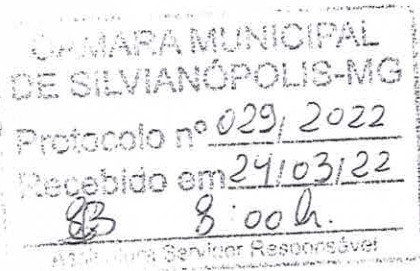 CÂMARA MUNICIPAL
DE SILVIANÓPOLIS-MG
Protocolo nº 029, 2022
Recebido em 24/03/22
8:00h.
Assinatura Servidor Responsável